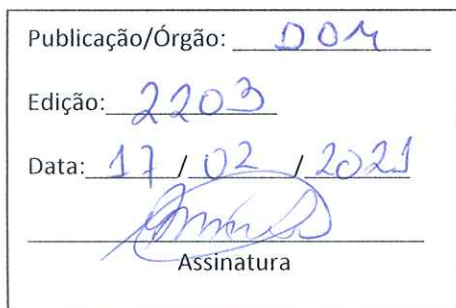 Publicação/Órgão: DOM
Edição: 2203
Data: 17 / 02 / 2021
Assinatura